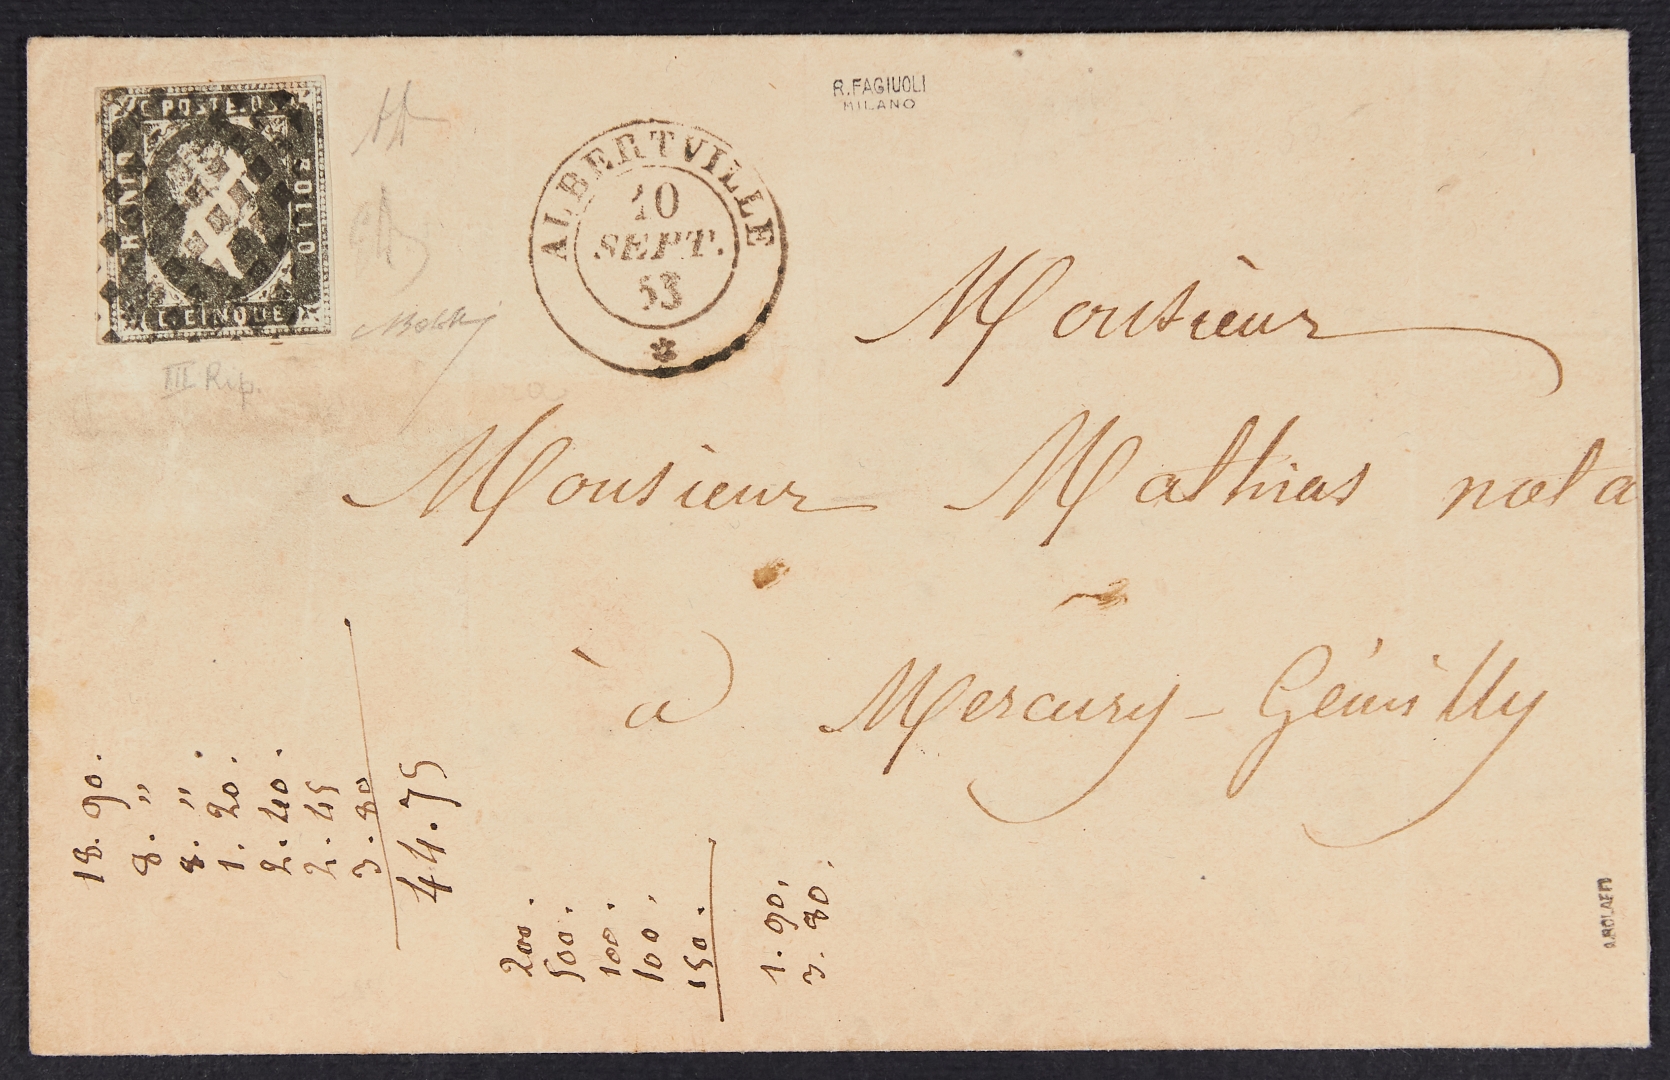 C. POSTE. DS
FRANCO
BOLLO
C. CINQUE
R. FAGIUOLI
MILANO
ALBERTVILLE
10
SEPT.
53
III Rip.
Monsieur
Monsieur Mathias nota
à Mercury-Gémilly
18. 90.
8. "
8. "
1. 20.
2. 40.
2. 45
3. 80
44. 75
200.
500.
100.
100.
150.
1. 90.
3. 80.
A. BOLAFFI